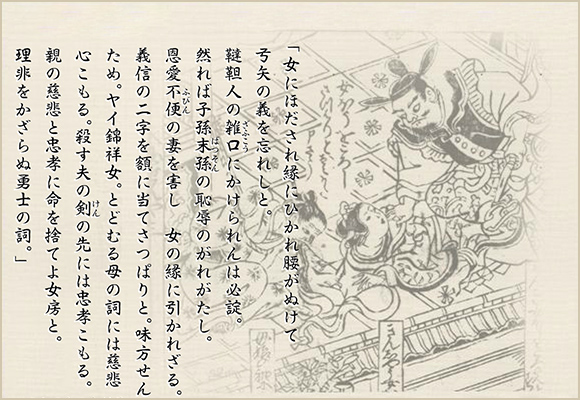 「女にほだされ縁にひかれ腰がぬけて
弓矢の義を忘れしと。
韃靼人の雑口にかけられんは必諚。
ざふこう
然れば子孫末孫の恥辱のがれがたし。
ばつそん
恩愛不便の妻を害し 女の縁に引かれざる。
ふびん
義信の二字を額に当てさつぱりと。味方せん
ため。ヤイ錦祥女。とどむる母の詞には慈悲
心こもる。殺す夫の剣の先には忠孝こもる。
けん
親の慈悲と忠孝に命を捨てよ女房と。
理非をかざらぬ勇士の詞。」